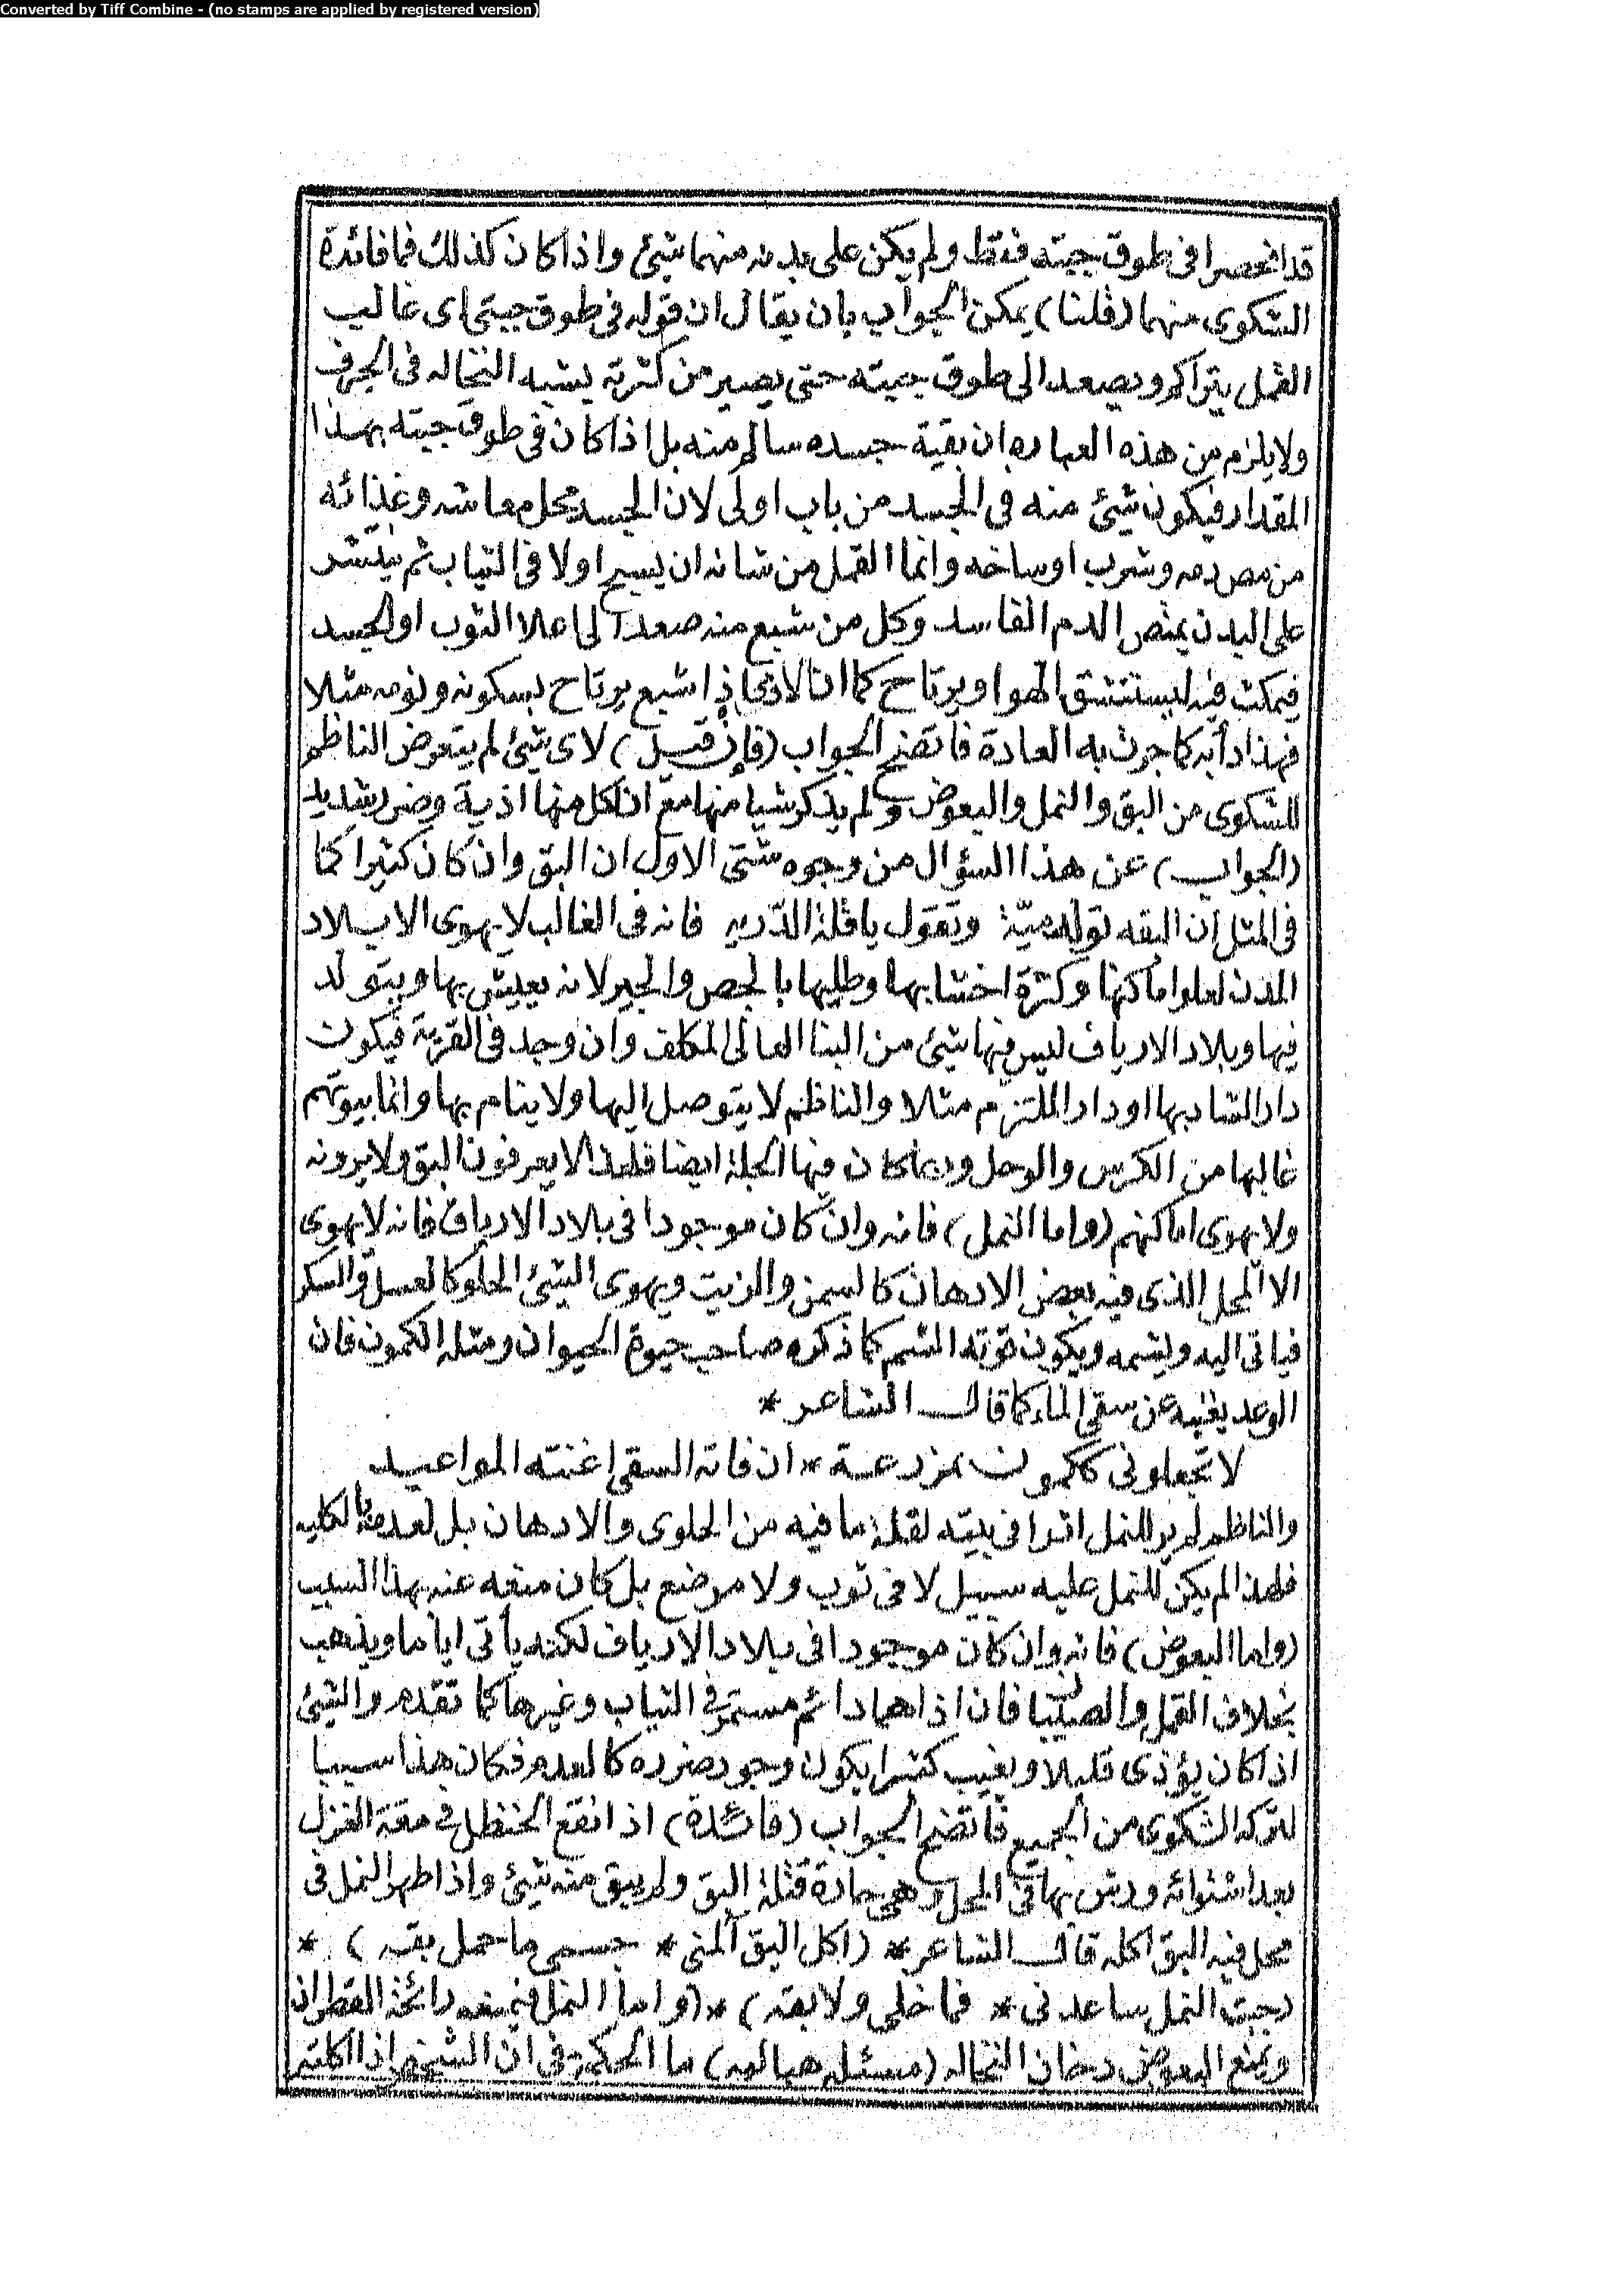 Converted by Tiff Combine - (no stamps are applied by registered version)
قد انحصرا فى طوق جبته فقط ولم يكن على بدنه منهما شيئ واذا كان كذلك فما فائدة
الشكوى منهما (قلنا) يمكن الجواب بان يقال ان قوله فى طوق جبتى اى غالب
القمل يتراكم ويصعد الى طوق جبته حتى يصير من كثرته يشبه النخاله فى الجرف
ولا يلزم من هذه العباره ان بقية جسده سالم منه بل اذا كان فى طوق جبته بهذا
المقدار فيكون شيئ منه فى الجسد من باب اولى لان الجسد محل معاشه وغذائه
من مص دمه وشرب اوساخه وانما القمل من شانه ان يسيح اولا فى الثياب ثم ينتشر
على البدن يمتص الدم الفاسد وكل من شبع منه صعد الى اعلا الثوب او الجسد
فيمكث فيه ليستنشق الهوا ويرتاح كما ان الادمى اذا شبع يرتاح بسكونه ونومه مثلا
فهذا دأبه كما جرت به العادة فاتضح الجواب (فإن قيل) لاى شيئ لم يتعرض الناظم
للشكوى من البق والنمل والبعوض ولم يذكر شيا منها مع ان لكل منها اذية وضرر شديد
(الجواب) عن هذا السؤال من وجوه شتى الاول ان البق وان كان كثيرا كما
فى المثل ان البقه تولد ميّة وتقول يا قلة الدّريه فانه فى الغالب لا يهوى الا بلاد
المدن لعلو اماكنها وكثرة اخشابها وطليها بالجص والجير لانه يعيش بها ويتولد
فيها وبلاد الارياف ليس فيها شيئ من البنا العالى المكلف وان وجد فى القرية فيكون
دار الشاد بها او دار الملتزم مثلا والناظم لا يتوصل اليها ولا ينام بها وانما بيوتهم
غالبها من الكرس والوحل وربما كان فيها الجلة ايضا فلهذا لا يعرفون البق ولا يرونه
ولا يهوى اماكنهم (واما النمل) فانه وان كان موجودا فى بلاد الارياف فانه لا يهوى
الا المحل الذى فيه بعض الادهان كالسمن والزيت ويهوى الشيئ الحلو كالعسل والسكر
فياتى اليه ويشمه ويكون قوته الشم كما ذكره صاحب حيوة الحيوان ومثله الكمون فان
الوعد يغنيه عن سقى الماء كما قال الشاعر *
لا تجعلونى ككمون بمزرعة * ان فاته السقى اغنته المواعيد
والناظم لم ير للنمل اثرا فى بيته لقلة ما فيه من الحلوى والادهان بل لعدمها بالكليه
فلهذا لم يكن للنمل عليه سبيل لا فى ثوب ولا موضع بل كان منعه عنه بهذا السبب
(واما البعوض) فانه وان كان موجودا فى بلاد الارياف لكنه يأتى اياما ويذهب
بخلاف القمل والصيبان فان اذاهما دائم مستمر فى الثياب وغيرها كما تقدم والشيئ
اذا كان يؤذى قليلا ويغيب كثيرا يكون وجود ضرره كالعدم فكان هذا سببا
لتركه الشكوى من الجميع فاتضح الجواب (فائدة) اذا نقع الحنظل فى مقة الغزل
بعد اشتوائه ورش بها فى المحل وهى حارة قتلة البق ولم يبق منه شيئ واذا ظهر النمل فى
محل فيه البق اكله قال الشاعر * (اكل البق ألمنى * جسمى ما حمل بقه) *
(جبت النمل ساعدنى * فما خلى ولا بقه) * (واما النمل فيمنعه رائحة القطران
ويمنع البعوض دخان النخاله (مسئله هباليه) ما الحكمة فى ان الشخص اذا اكلته